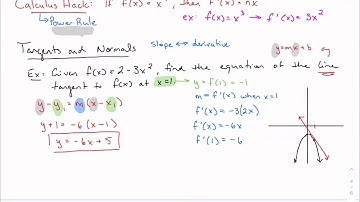 Calculus Hack: If f(x) = x , then f'(x) = nx
↳ Power Rule
ex: f(x) = x³ → f'(x) = 3x²
Tangents and Normals
Slope ↔ derivative
y = mx + b
Ex: Given f(x) = 2 - 3x², find the equation of the line
tangent to f(x) at x = 1. → y = f(1) = -1
y - y₁ = m(x - x₁)
y + 1 = -6(x - 1)
y = -6x + 5
m = f'(x) when x = 1
f'(x) = -3(2x)
f'(x) = -6x
f'(1) = -6
1